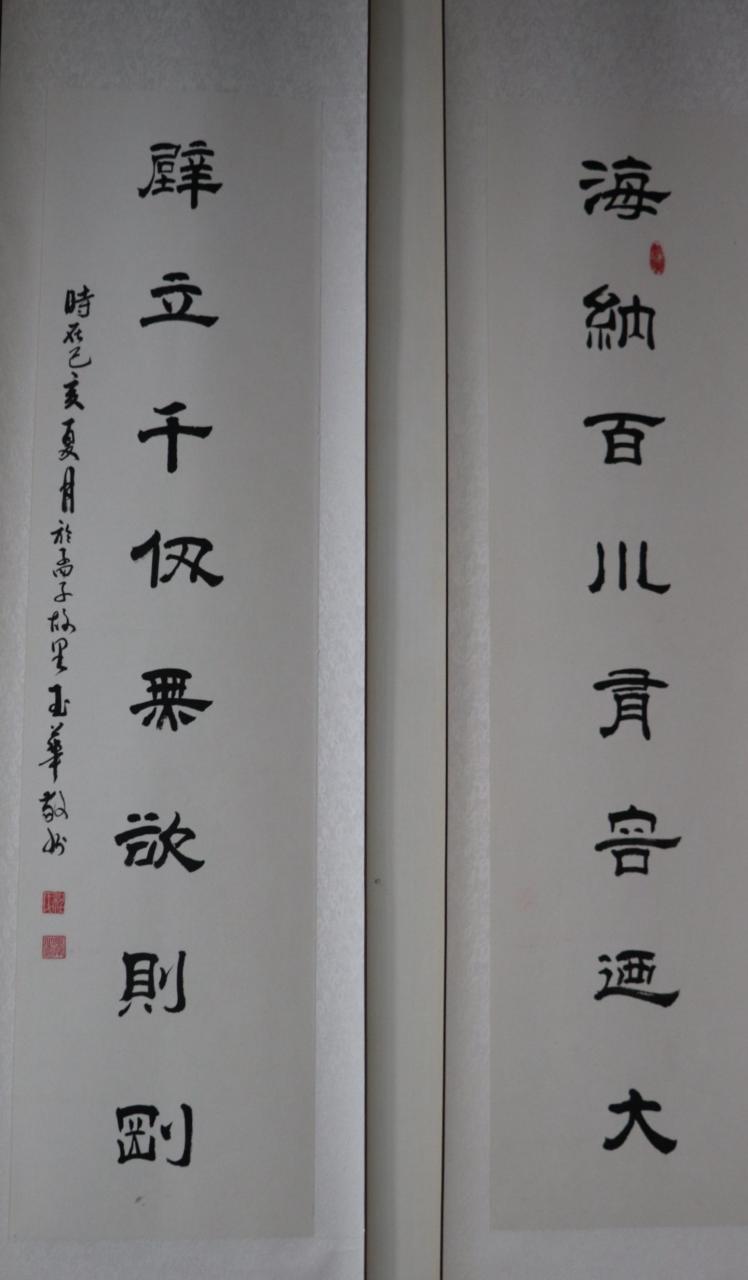 海納百川有容迺大
壁立千仞無欲則剛
時在己亥夏月於孟子故里玉華敬書